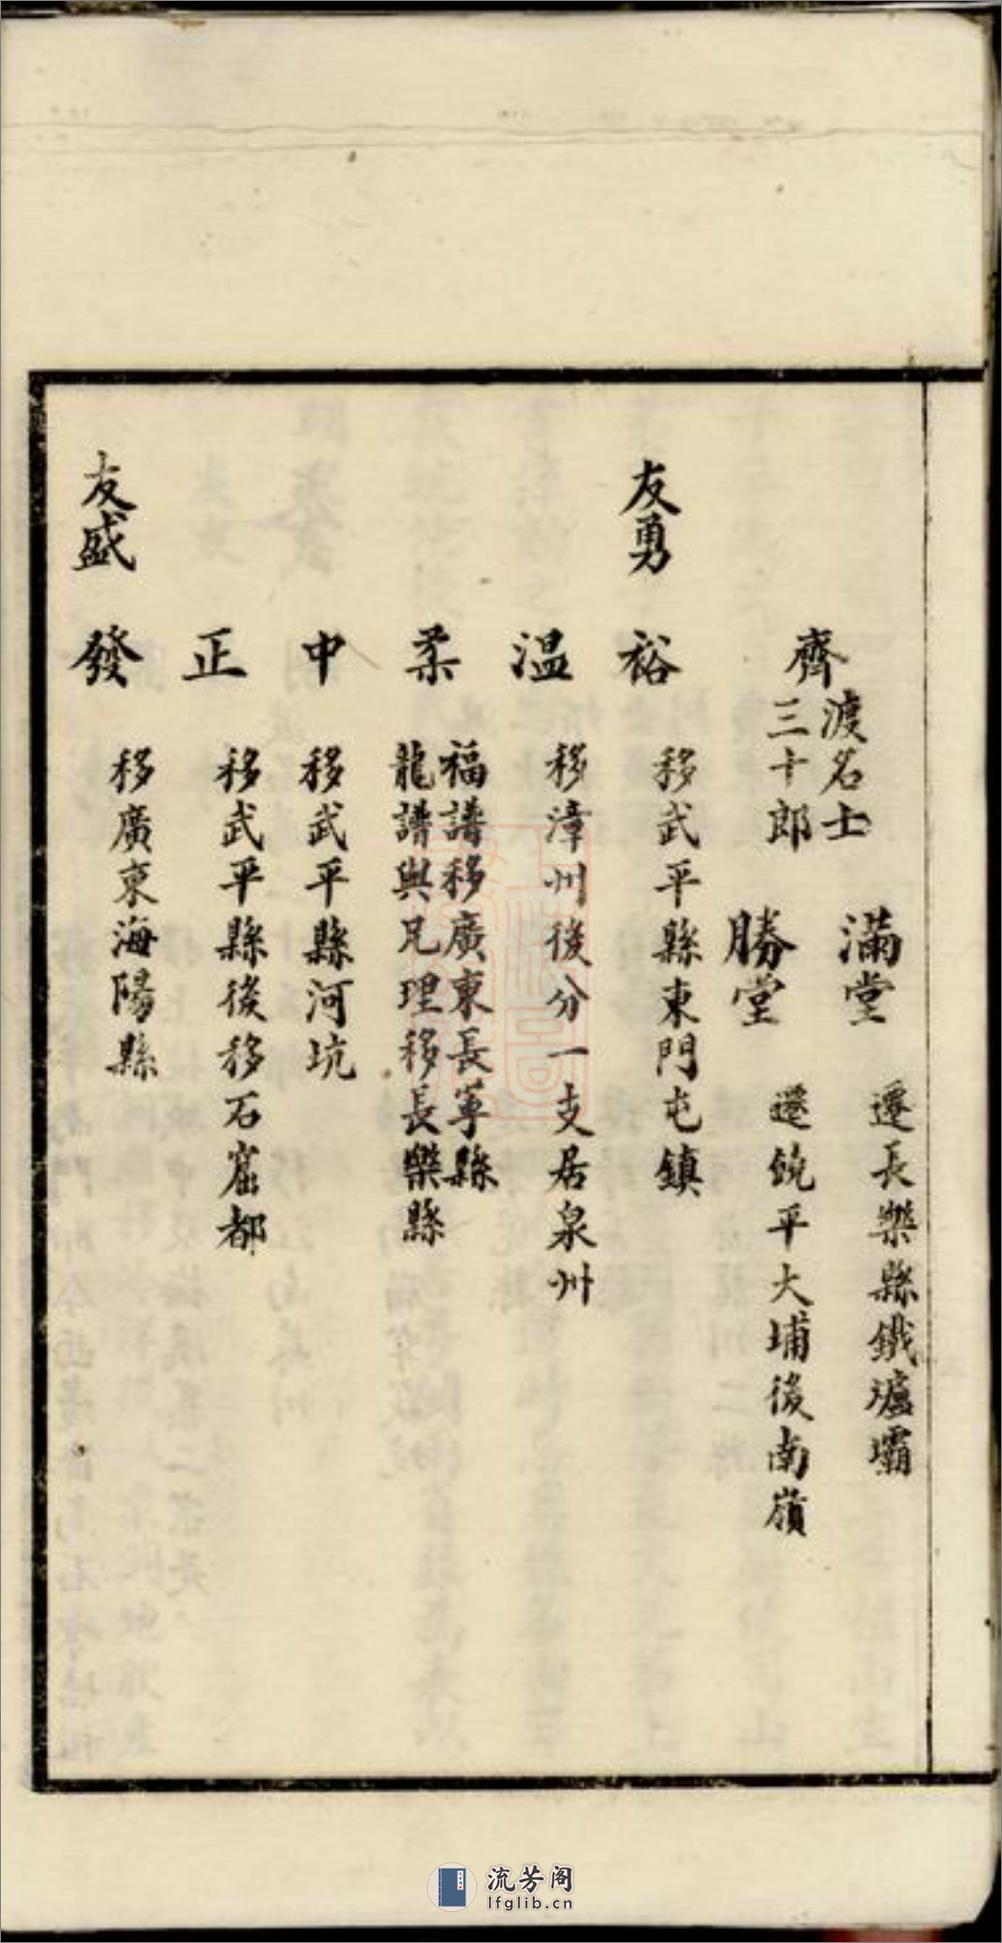 滿堂
遷長樂縣鐵爐壩
齊
渡名士
三十郎
勝堂
遷饒平大埔後南嶺
友勇
裕
移武平縣東門屯鎮
温
移漳州後分一支居泉州
柔
福譜移廣東長寧縣
龍譜與兄理移長樂縣
中
移武平縣河坑
正
移武平縣後移石窟都
友盛
發
移廣東海陽縣
流芳阁
lfglib.cn